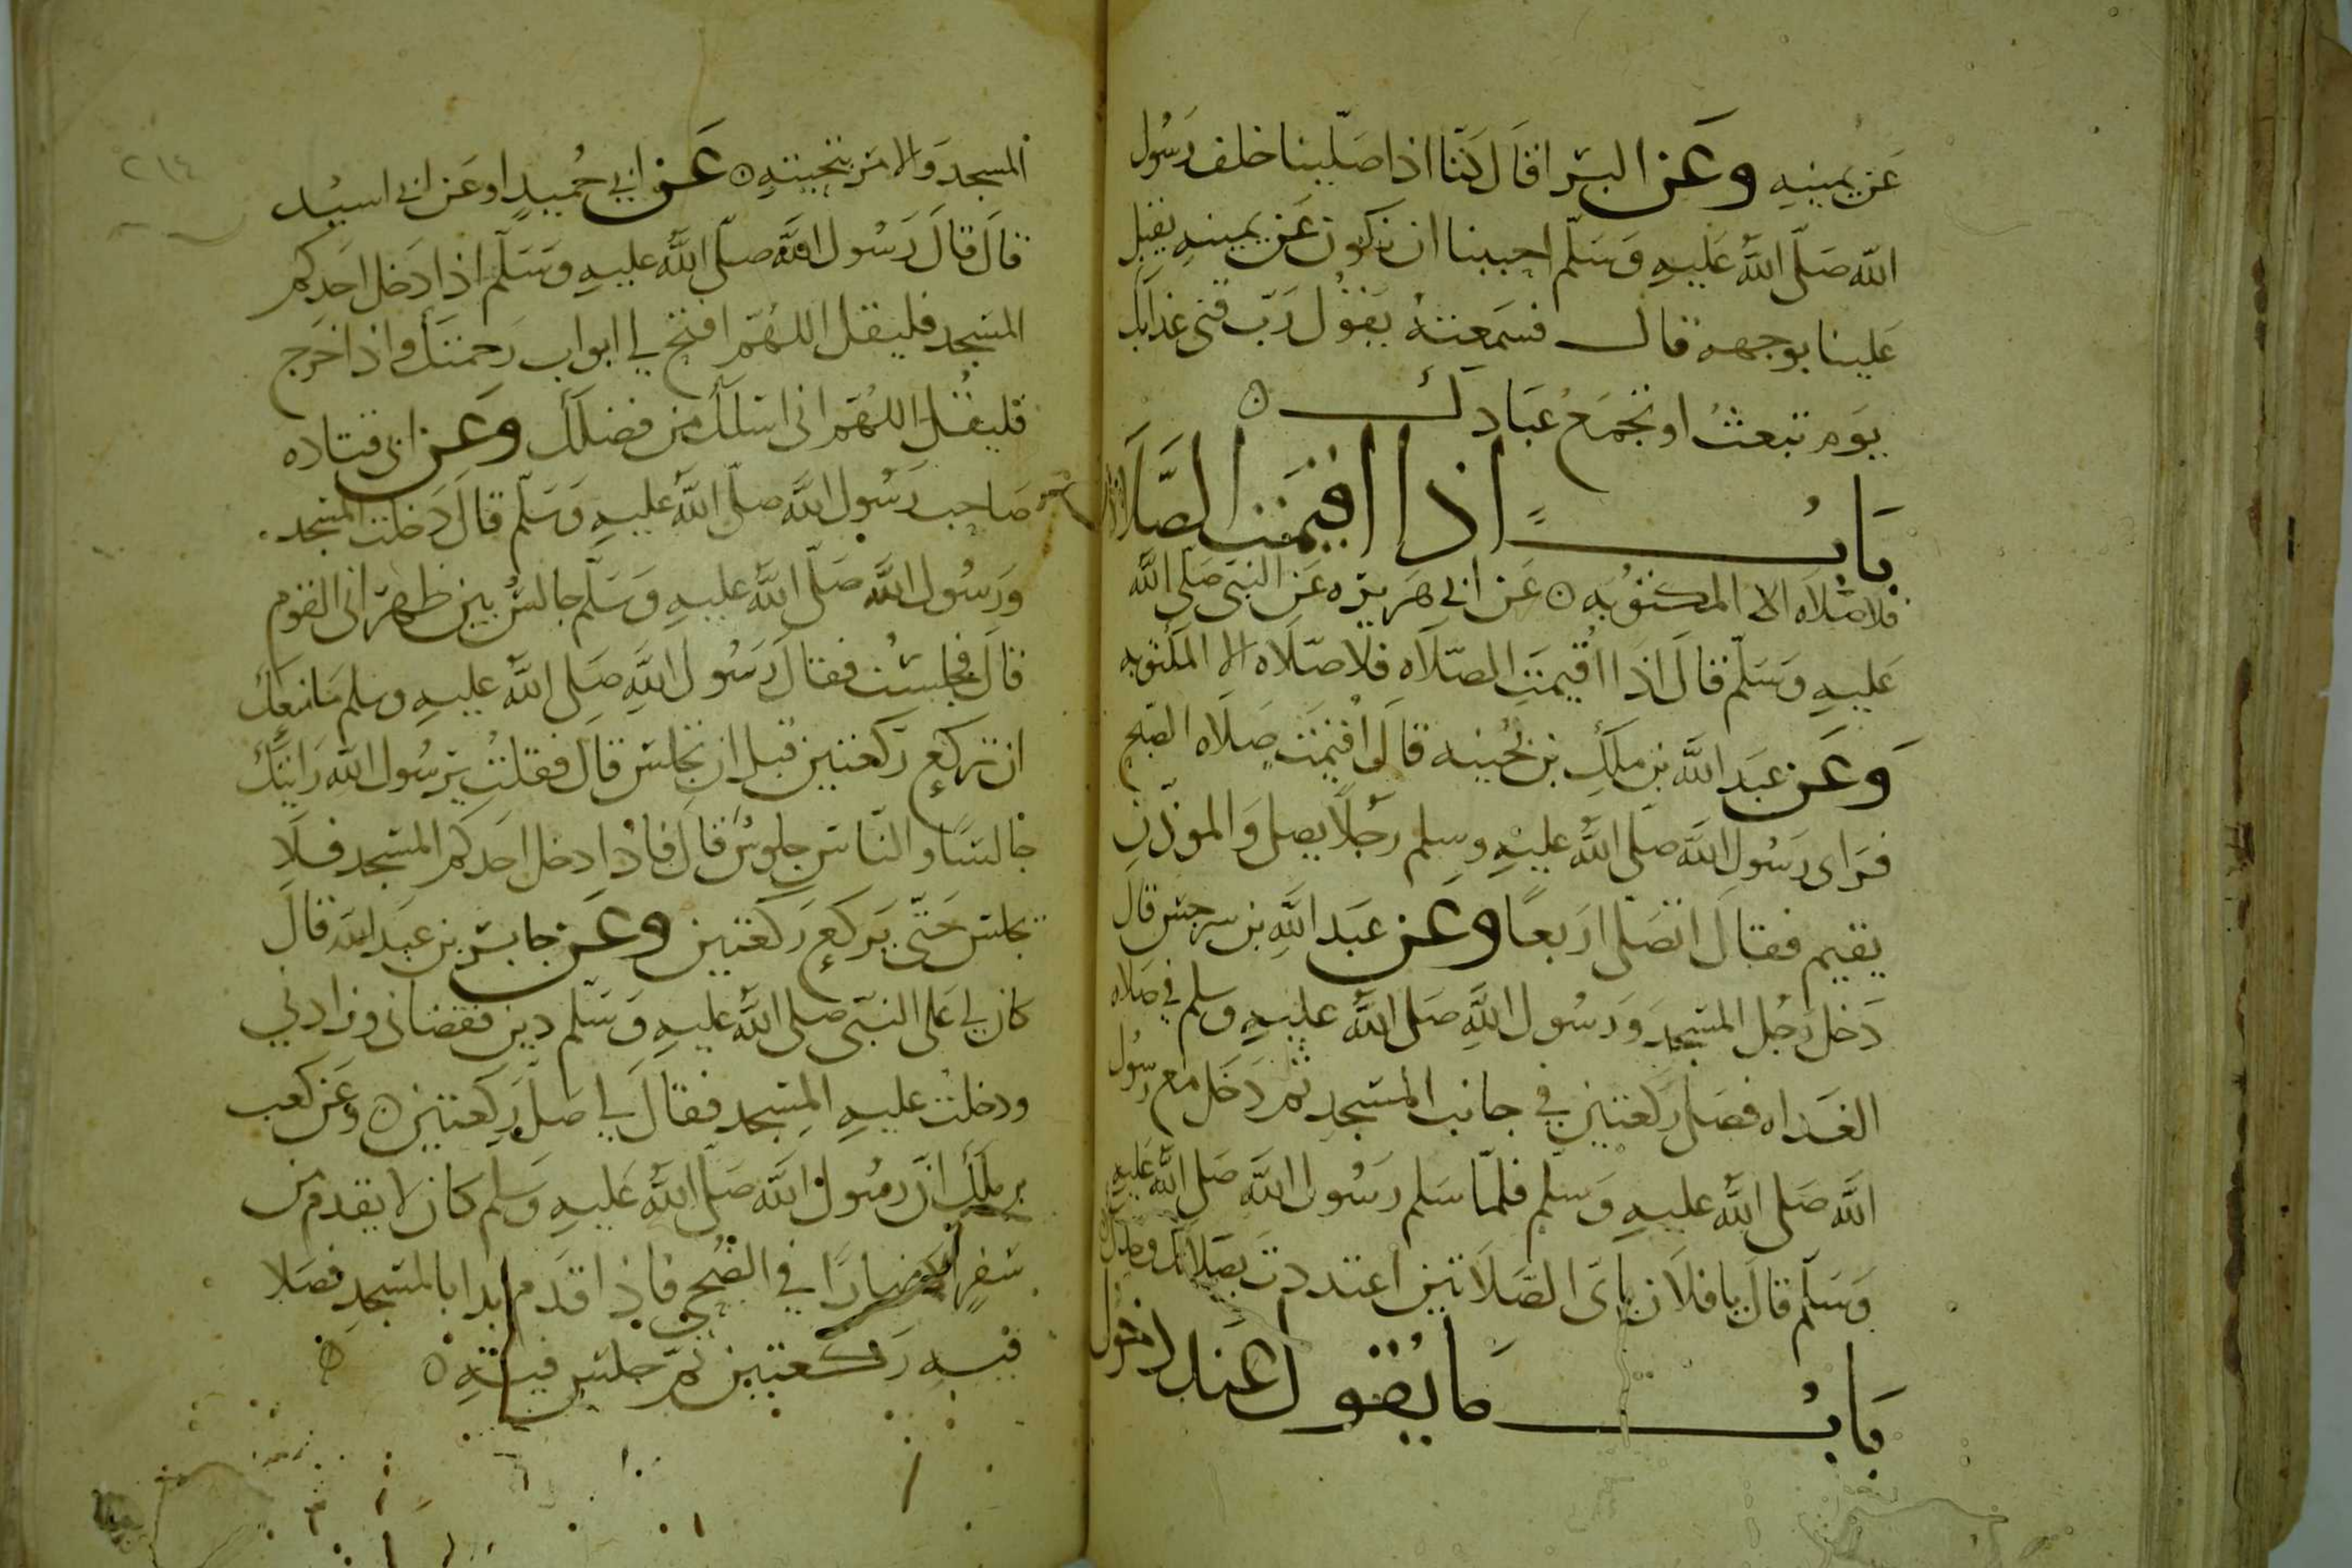 عَن يمينِهِ وعَن البَرا قَالَ كنّا اذا صَلّينا خلف رَسُول
الله صَلّى اللهُ عَليهِ وَسَلّم احببنا ان نكون عَن يمينهِ يقبل
عَلينا بوجهه قال فسَمعتهُ يَقوُل رَبّ قنى عَذابَك
يوَم تبعثُ او تجمَعُ عبَادَك
بَابٌ اذا اقيمَت الصَّلَاة
فلا صَلاَه الا المكتوُبه عَن ابي هرَيرَه عَن النبي صَلّى الله
عَليهِ وَسَلّم قالَ اذَا اُقيمَتِ الصّلاَه فلا صَلَاه الا المكتوُبه
وَعَن عبَد اللهِ بنِ ملكِ بن بُحينه قالَ اُقيمَت صَلَاه الصّبح
فرَاى رَسُول الله صَلى اللهُ عليهِ وسلم رَجُلاً يصلي وَالموذّن
يقيم فقالَ اتصَلّى ارَبعاً وعَن عبَد اللهِ بن سرجسَ قالَ
دَخل رَجُل المسَجدَ وَرَسُول اللهِ صَلى اللهُ عليهِ وسلم في صَلاه
الغَداه فصَلى رَكعتين في جانب المسَجدِ ثمر دَخَل مع رسُول
الله صَلى اللهُ عليهِ وَسلم فلمّا سَلم رَسُول اللهِ صَلى اللهُ عَليهِ
وَسَلّم قالَ يا فلَان باىّ الصَّلَاتين اعتددتَ بصَلاتك وحدك
بَابُ مَا يُقوُل عَند دخول
المسجدَ والامر بتحيتهِ عَن ابي حُميدٍ او عَن ابي اسيد
قالَ قالَ رَسُول اللهِ صلّى اللهُ عليهِ وَسَلّم اذا دَخل احَدكم
المسَجد فليقل اللهُمّ افتح لي ابواب رَحمتكَ واذا خرَج
فليقُل اللهُمّ انى اسَلكَ من فضلكَ وعَن ابى قتاده
صَاحب رَسُول اللهِ صَلّى اللهُ عليهِ وَسَلّم قالَ دَخلت المسَجد
ورَسُول الله صَلّى اللهُ عليهِ وَسَلّم جالسٌ بين ظهرَانى القوم
قالَ فجلسَتُ فقالَ رَسُول اللهِ صَلى اللهُ عليهِ وسلم مَا منعَكَ
ان تركع رَكعتين قبل ان تجلسَ قالَ فقلتُ يرَسُول الله رَايتكَ
جَالسًا والنّاسَ جلوسٌ قالَ فاذا دخل احَدكم المسَجد فلَا
تجلسَ حَتّى يَركع رَكعتين وعَن جابرَ بن عبَد الله قالَ
كان لي عَلى النبّى صَلى اللهُ عليهِ وَسَلّم دين فقضانى وزادَني
ودخلت عليهِ المسجد فقالَ لي صَلّ رَكعتين وعَن كعب
بن ملكِ انّ رسُول اللهِ صَلّى اللهُ عَليهِ وَسلم كان لا يقدم من
سَفرٍ الا نهارًا في الضّحى فاذا قدَم بدا بالمسَجدِ فصَلا
فيهِ رَكعتين ثمّ جلسَ فيهِ
٢١٤